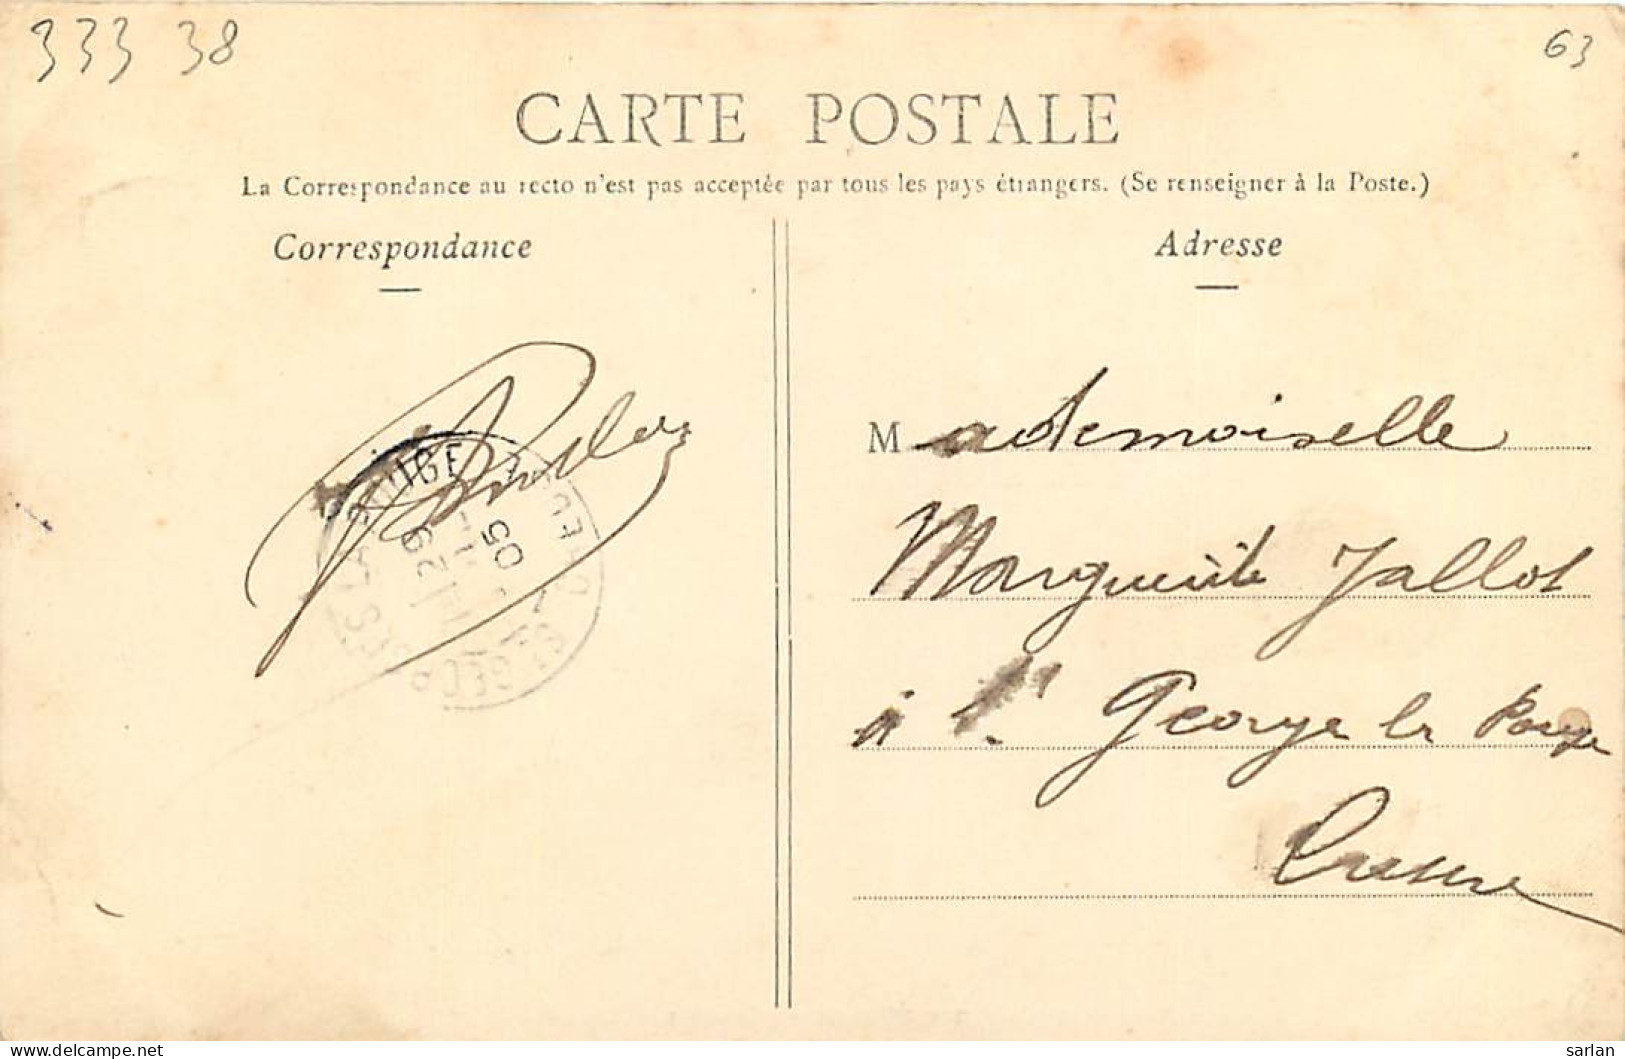 333 38
63
CARTE POSTALE
La Correspondance au recto n'est pas acceptée par tous les pays étrangers. (Se renseigner à la Poste.)
Correspondance
Adresse
Mademoiselle
Marguerite Jallot
à St George la Pouge
Creuse
LA POUGE
29
05
ST GEORGES
delcampe.net
sarlan